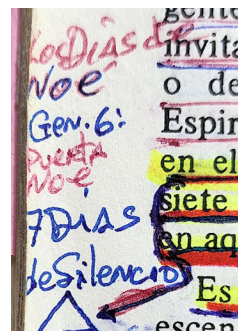 Los Dias de
Noe
Gen. 6:
puerta
Noe
7 Dias
de Silencio
gente
invita
o de
Espir
en el
siete
en aq
Es
escen